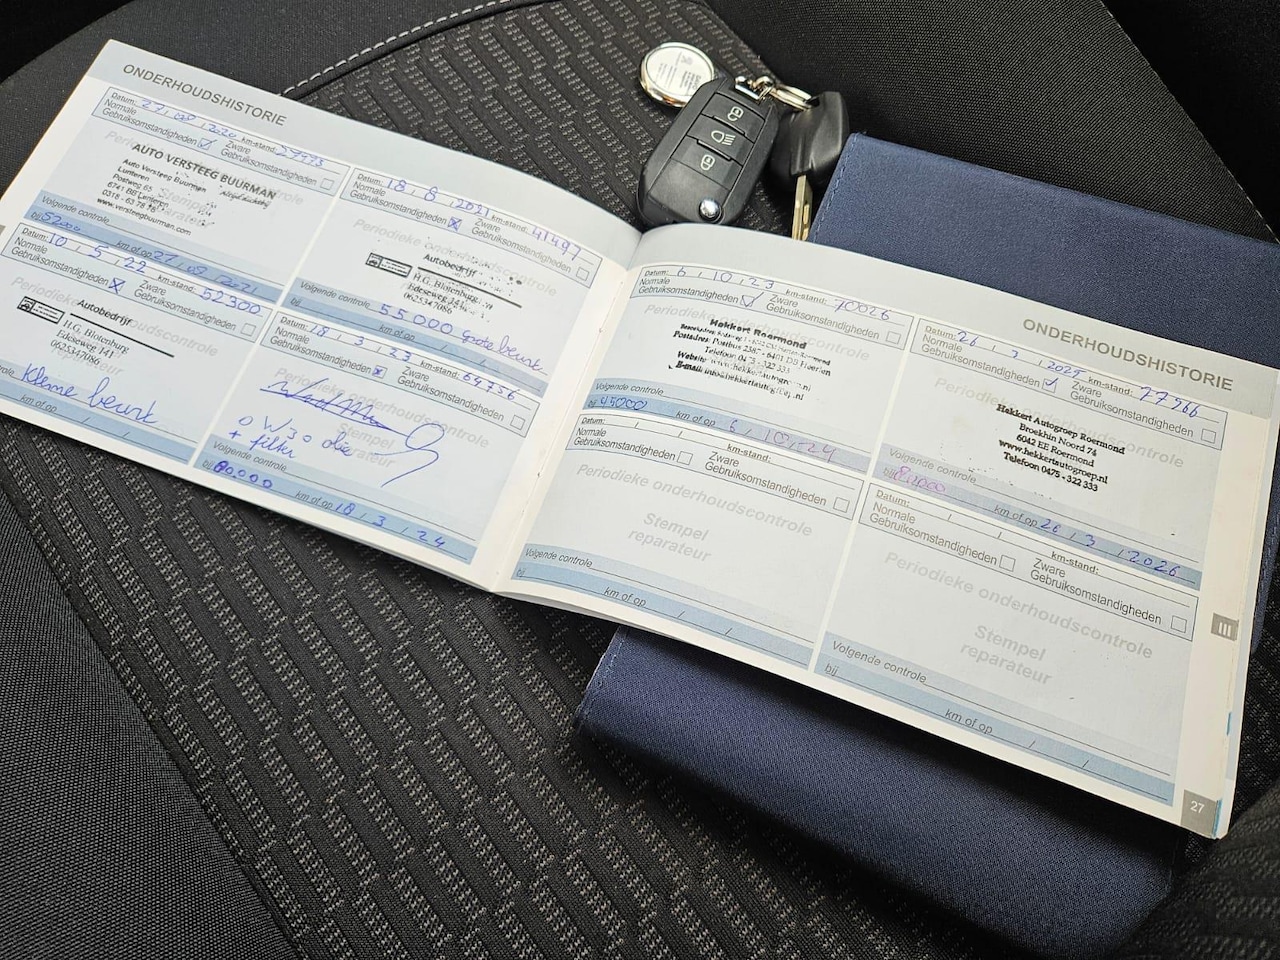 ONDERHOUDSHISTORIE
Datum: 27 , 08 , 2020 km-stand:
Normale Gebruiksomstandigheden
Zware Gebruiksomstandigheden
AUTO VERSTEEG BUURMAN
Auto Versteeg Buurman
Lunteren
Postweg 65
6741 BB Lunteren
www.versteegbuurman.com
Volgende controle
bij 52000 km of op 27 , 08 , 2021
Datum: 18 , 8 , 2021 km-stand: 41497
Normale Gebruiksomstandigheden
Zware Gebruiksomstandigheden
Periodieke onderhoudscontrole
Autobedrijf
H.G. Blotenburg
Edeseweg 141
0625347086
Volgende controle
bij 55000 grote beurt
km of op
Datum: 10 , 5 , 22 km-stand: 52300
Normale Gebruiksomstandigheden
Zware Gebruiksomstandigheden
Autobedrijf
H.G. Blotenburg
Edeseweg 141
0625347086
Kleine beurt
km of op
Datum: 18 , 3 , 23 km-stand: 64356
Normale Gebruiksomstandigheden
Zware Gebruiksomstandigheden
Periodieke onderhoudscontrole
Stempel
+ filter
Volgende controle
bij 80.000 km of op 18 , 3 , 24
ONDERHOUDSHISTORIE
Datum: 6 , 10 , 23 km-stand: 70026
Normale Gebruiksomstandigheden
Zware Gebruiksomstandigheden
Hekkert Roermond
Telefoon 0475 - 322 333
Volgende controle
bij km of op 6 , 10 , 24
Datum: 26 , 3 , 2025 km-stand: 77966
Normale Gebruiksomstandigheden
Zware Gebruiksomstandigheden
Hekkert Autogroep Roermond
Broekhin Noord 74
6042 EE Roermond
www.hekkertautogroep.nl
Telefoon 0475 - 322 333
Volgende controle
bij km of op 26 , 3 , 2026
Datum: / / km-stand:
Normale Gebruiksomstandigheden
Zware Gebruiksomstandigheden
Periodieke onderhoudscontrole
Stempel
reparateur
Volgende controle
bij km of op / /
Datum: / / km-stand:
Normale Gebruiksomstandigheden
Zware Gebruiksomstandigheden
Periodieke onderhoudscontrole
Stempel
reparateur
Volgende controle
bij km of op / /
III
27